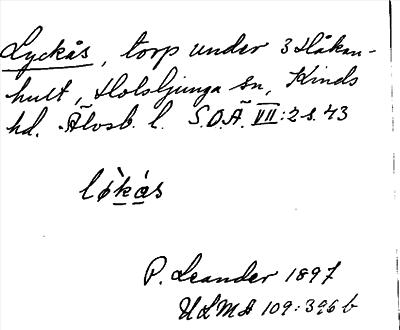 Lyckås, torp under 3 Håkan-
hult, Holsljunga sn, Kinds
hd. Älvsb. l. S.O.Ä VII:2 s. 43
lø̀kås
P. Leander 1897
ULMA 109:396 b